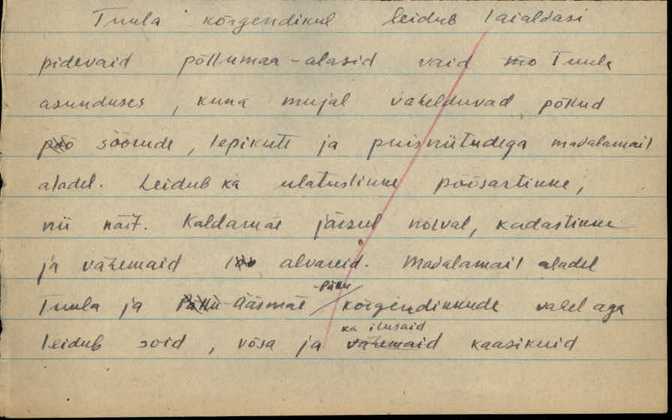 Tuula kõrgendikul leidub laialdasi
pidevaid põllumaa-alasid vaid Tuula
asunduses, kuna mujal vahelduvad põllud
söörude, lepikute ja puisniitudega madalamail
aladel. Leidub ka ulatuslinne põõsastinne,
nii näit. Kaldamäe järsul nõlval, kadastinne
ja vähemaid alvareid. Madalamail aladel
-Põllu
Tuula ja Ääsmäe kõrgendikkude vahel aga
ka ilusaid
leidub soid, võsa ja vähemaid kaasikuid